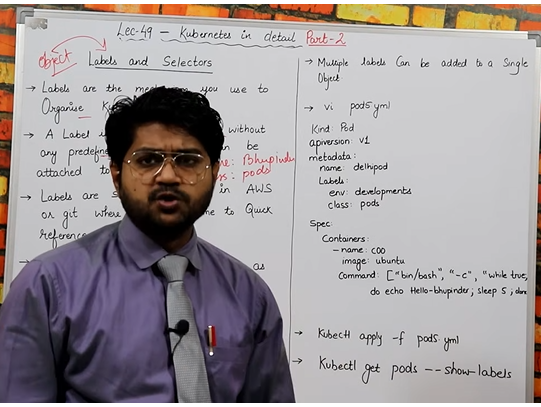 Lec-49 - Kubernetes in detail Part-2
Object
Labels and Selectors
→ Labels are the you use to
Organise
→ A Label without
any be
attached to : Bhupinder
: pods
→ Labels are in AWS
or git where to Quick
reference
as
→ Multiple labels Can be added to a Single
Object.
→ vi pod5.yml
Kind: Pod
apiversion: v1
metadata:
name: delhipod
Labels:
env: developments
class: pods
Spec:
Containers:
- name: c00
image: ubuntu
Command: ["bin/bash", "-c", "while true;
do echo Hello-bhupinder; sleep 5; done
→ Kubectl apply -f pod5.yml
→ Kubectl get pods --show-labels